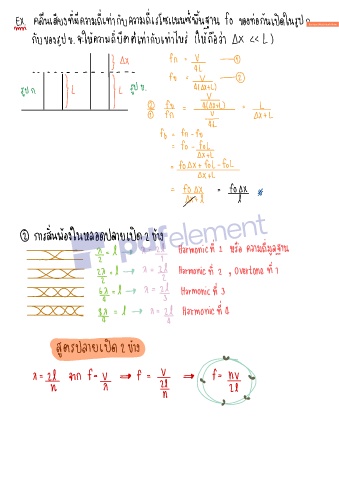 EX. คลื่นเสียงที่มีความถี่เท่ากับความถี่เรโซแนนซ์พื้นฐาน f₀ ของท่อก้นเปิดในรูป ก
กับของรูป ข. จะให้ความถี่บีตส์เท่ากับเท่าไหร่ (ให้ถือว่า Δx << L)
Δx
รูป ก
L
L
รูป ข.
fก = V/4L —①
fข = V/4(Δx+L) —②
②/① fข/fก = (V/4(Δx+L))/(V/4L) = L/(Δx+L)
fb = fก - fข
= f₀ - f₀L/(Δx+L)
= (f₀Δx + f₀L - f₀L)/(Δx+L)
= f₀Δx/(Δx+l) = f₀Δx/l
② การสั่นพ้องในหลอดปลายเปิด 2 ข้าง
pdfelement
λ/2 = l → λ = 2l/1 Harmonic ที่ 1 หรือ ความถี่มูลฐาน
2λ/2 = l → λ = 2l/2 Harmonic ที่ 2 , Overtone ที่ 1
3λ/2 = l → λ = 2l/3 Harmonic ที่ 3
4λ/2 = l → λ = 2l/4 Harmonic ที่ 4
สูตรปลายเปิด 2 ข้าง
λ = 2l/n จาก f = V/λ ⇒ f = V/(2l/n) ⇒ f = nV/2l